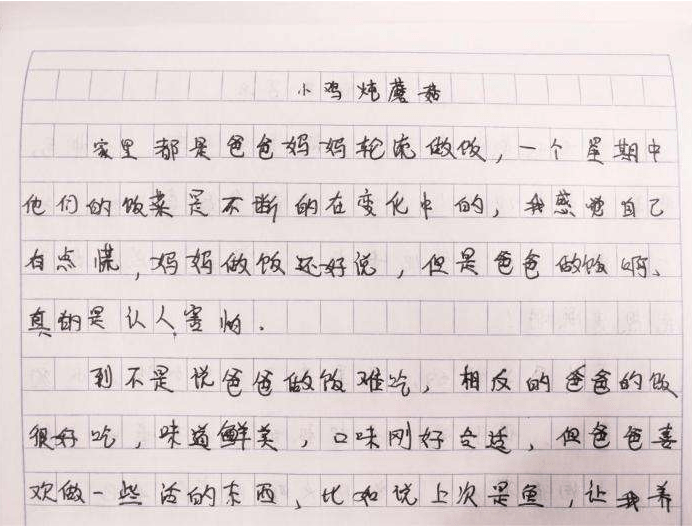 小鸡炖蘑菇
家里都是爸爸妈妈轮流做饭，一个星期中
他们的饭菜是不断的在变化中的，我感觉自己
有点慌，妈妈做饭还好说，但是爸爸做饭啊、
真的是让人害怕.
到不是说爸爸做饭难吃，相反的爸爸的饭
很好吃，味道鲜美，口味刚好合适，但爸爸喜
欢做一些活的东西，比如说上次是鱼，让我养